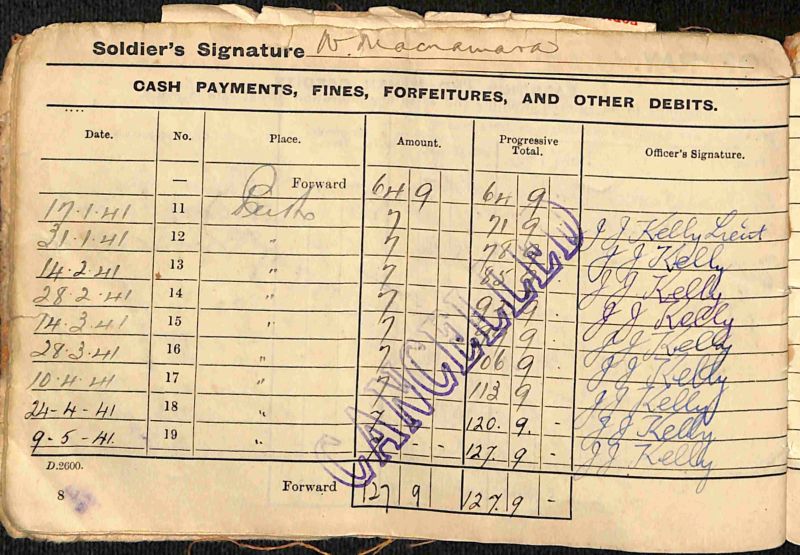 Soldier's Signature W. Macnamara
CASH PAYMENTS, FINES, FORFEITURES, AND OTHER DEBITS.
Date. No. Place. Amount. Progressive Total. Officer's Signature.
— Forward 64 9 64 9
17.1.41 11 Perth 7 71 9 J J Kelly Lieut
31.1.41 12 " 7 78 9 J J Kelly
14.2.41 13 " 7 85 J J Kelly
28.2.41 14 " 7 J J Kelly
14.3.41 15 " 7 9 J J Kelly
28.3.41 16 " 7 106 9 J J Kelly
10.4.41 17 " 113 9 J J Kelly
24-4-41 18 " 7 120. 9. - J J Kelly
9-5-41. 19 " - - 127. 9 - J J Kelly
CANCELLED
D.2600.
Forward 127 9 127. 9 -
8